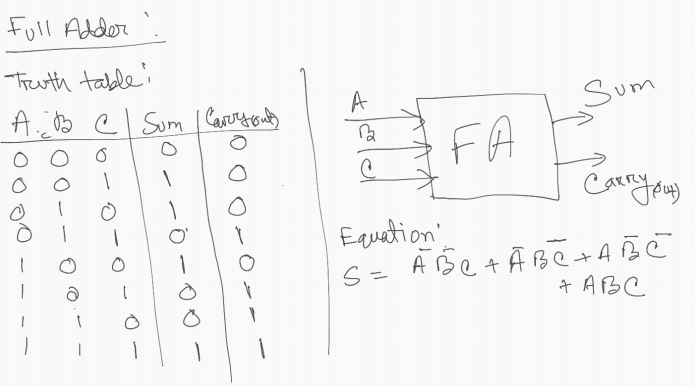 Full Adder :
Truth table :
A B C Sum Carry(out)
0 0 0 0 0
0 0 1 1 0
0 1 0 1 0
0 1 1 0 1
1 0 0 1 0
1 0 1 0 1
1 1 0 0 1
1 1 1 1 1
A
B
C
FA
Sum
Carry(out)
Equation:
S = A̅ B̅ C + A̅ B C̅ + A B̅ C̅
+ ABC